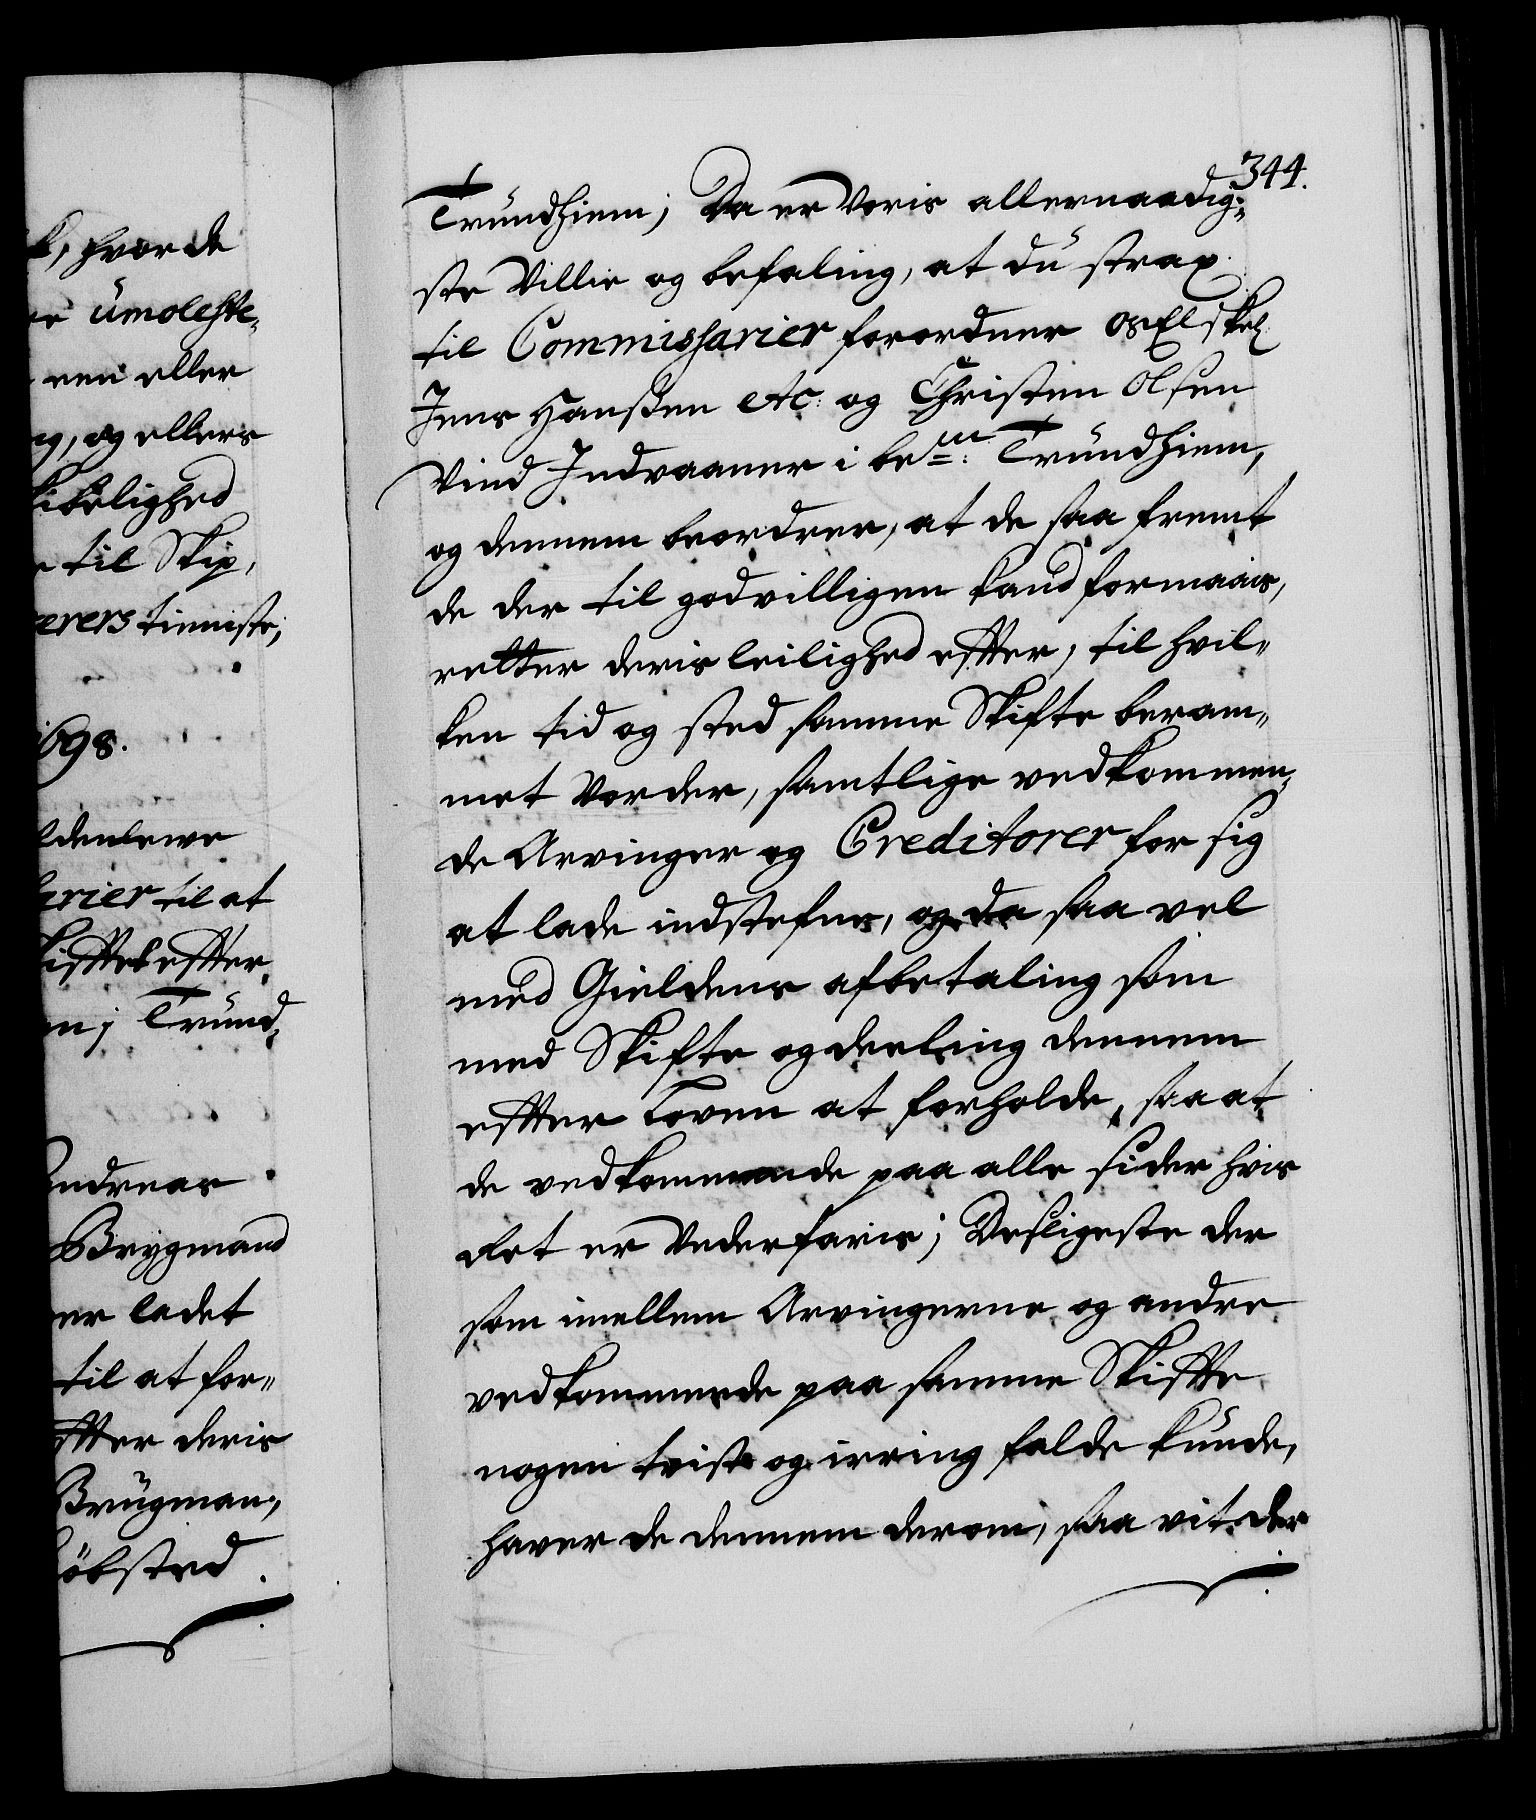 k, hvor de
er umoleste-
en eller
og, og ellers
ibelighed
til Skip,
erers tieniste;
1698.
ldenlewe
arier til at
ifftet effter
en i Trund-
Andreas
Brygmand
er ladet
til at for-
ffter deris
Brügman,
öbsted.
344.
Trundhiem; Da er Voris allernaadig-
ste Villie og befaling, at du strax
til Commissarier forordner os Elskel.
Jens Hanssen etc: og Christen Olsen
Vind Indvaaner i bem: Trundhiem,
og dennem beordrer, at de saa fremt
de der til godvilligen kand formaais,
retter deris leilighed effter, til hvil-
ken tid og sted samme Skifte beram-
met Vorder, samtlige vedkommen-
de Arvinger og Creditorer for sig
at lade indstefne, og da saa vel
med Gieldens afbetaling som
med Skifte og deeling dennem
effter Loven at forholde, saa at
de vedkommende paa alle sider hvis
Ret er Vederfaris; Desligeste der
som imellem Arvingerne og andre
vedkommende paa samme Skiffte
nogen tvist og irring falde kunde,
haver de dennem derom, saa vit der